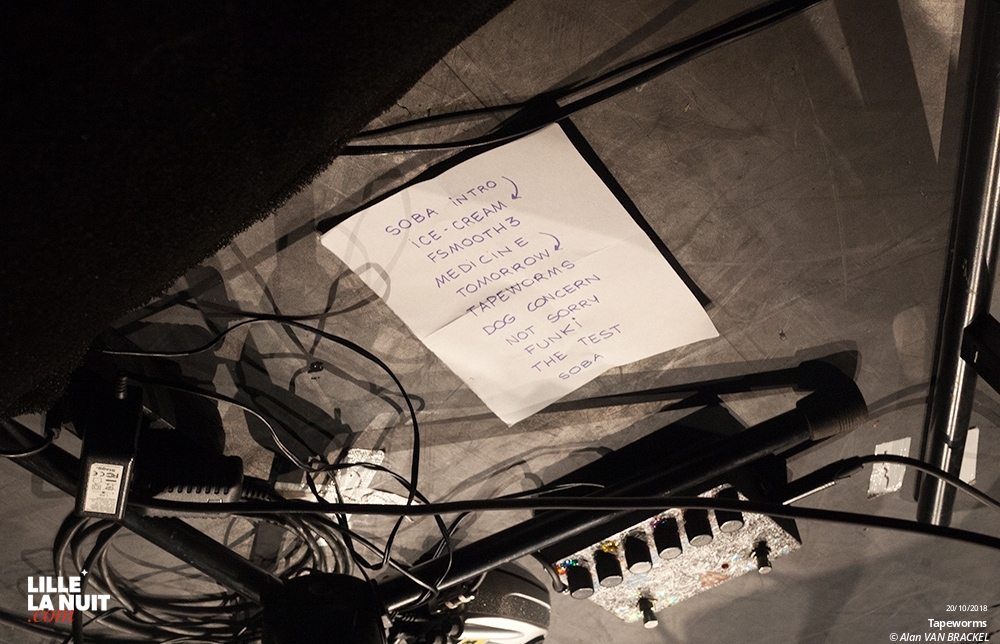 SOBA iNTRO
iCE-CREAM
FSMOOTH3
MEDICINE
TOMORROW
TAPEWORMS
DOG CONCERN
NOT SORRY
FUNKi
THE TEST
SOBA
LILLE
LA NUIT
.com
20/10/2018
Tapeworms
© Alan VAN BRACKEL